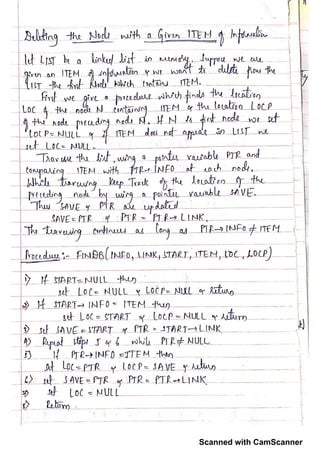 Deleting the Node with a Given ITEM of Information
let LIST be a linked list in memory. Suppose we are
given an ITEM of information & we want to delete from the
LIST the first Node which contains ITEM.
First we give a procedure which finds the location
LOC of the node N containing ITEM & the location LOCP
of the node preceding node N. If N is first node we set
LOCP=NULL & if ITEM does not appear in LIST we
set LOC= NULL.
Traverse the list, using a pointer variable PTR and
comparing ITEM with PTR→INFO at each node.
While traversing keep track of the location of the
preceding node by using a pointer variable SAVE.
Thus SAVE & PTR are updated
SAVE=PTR & PTR = PTR→LINK,
The traversing continues as long as PTR→INFO≠ITEM
Procedure:- FINDB(INFO, LINK, START, ITEM, LOC, LOCP)
1) If START=NULL then
set LOC= NULL & LOCP= NULL & return
2) If START→INFO = ITEM then
set LOC= START & LOCP= NULL & return
3) set SAVE=START & PTR = START→LINK
4) Repeat steps 5 & 6 while PTR≠NULL
5) If PTR→INFO =ITEM then
set LOC=PTR & LOCP= SAVE & return
6) set SAVE=PTR & PTR= PTR→LINK
7) set LOC = NULL
8) Return.
Scanned with CamScanner